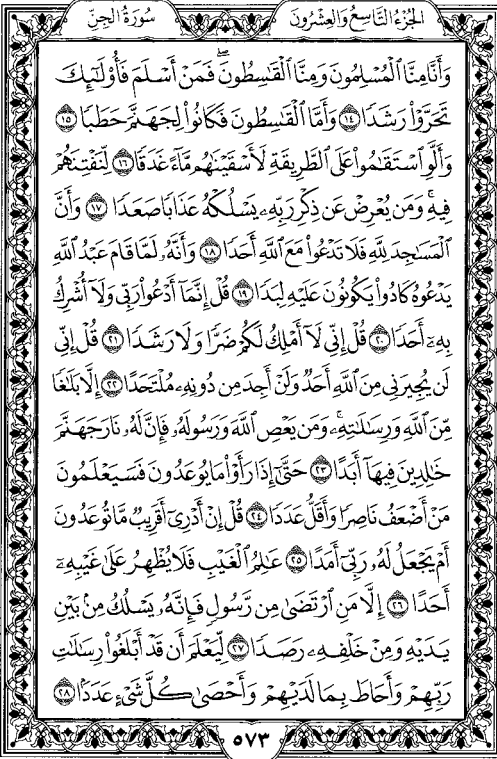 الجُزءُ التَّاسِعُ وَالعِشْرُونَ
سُورَةُ الجِنّ
وَأَنَّا مِنَّا ٱلْمُسْلِمُونَ وَمِنَّا ٱلْقَٰسِطُونَۖ فَمَنْ أَسْلَمَ فَأُو۟لَٰٓئِكَ
تَحَرَّوْا۟ رَشَدًا ١٤ وَأَمَّا ٱلْقَٰسِطُونَ فَكَانُوا۟ لِجَهَنَّمَ حَطَبًا ١٥
وَأَلَّوِ ٱسْتَقَٰمُوا۟ عَلَى ٱلطَّرِيقَةِ لَأَسْقَيْنَٰهُم مَّآءً غَدَقًا ١٦ لِّنَفْتِنَهُمْ
فِيهِۚ وَمَن يُعْرِضْ عَن ذِكْرِ رَبِّهِۦ يَسْلُكْهُ عَذَابًا صَعَدًا ١٧ وَأَنَّ
ٱلْمَسَٰجِدَ لِلَّهِ فَلَا تَدْعُوا۟ مَعَ ٱللَّهِ أَحَدًا ١٨ وَأَنَّهُۥ لَمَّا قَامَ عَبْدُ ٱللَّهِ
يَدْعُوهُ كَادُوا۟ يَكُونُونَ عَلَيْهِ لِبَدًا ١٩ قُلْ إِنَّمَآ أَدْعُوا۟ رَبِّى وَلَآ أُشْرِكُ
بِهِۦٓ أَحَدًا ٢٠ قُلْ إِنِّى لَآ أَمْلِكُ لَكُمْ ضَرًّا وَلَا رَشَدًا ٢١ قُلْ إِنِّى
لَن يُجِيرَنِى مِنَ ٱللَّهِ أَحَدٌ وَلَنْ أَجِدَ مِن دُونِهِۦ مُلْتَحَدًا ٢٢ إِلَّا بَلَٰغًا
مِّنَ ٱللَّهِ وَرِسَٰلَٰتِهِۦۚ وَمَن يَعْصِ ٱللَّهَ وَرَسُولَهُۥ فَإِنَّ لَهُۥ نَارَ جَهَنَّمَ
خَٰلِدِينَ فِيهَآ أَبَدًا ٢٣ حَتَّىٰٓ إِذَا رَأَوْا۟ مَا يُوعَدُونَ فَسَيَعْلَمُونَ
مَنْ أَضْعَفُ نَاصِرًا وَأَقَلُّ عَدَدًا ٢٤ قُلْ إِنْ أَدْرِىٓ أَقَرِيبٌ مَّا تُوعَدُونَ
أَمْ يَجْعَلُ لَهُۥ رَبِّىٓ أَمَدًا ٢٥ عَٰلِمُ ٱلْغَيْبِ فَلَا يُظْهِرُ عَلَىٰ غَيْبِهِۦٓ
أَحَدًا ٢٦ إِلَّا مَنِ ٱرْتَضَىٰ مِن رَّسُولٍ فَإِنَّهُۥ يَسْلُكُ مِنۢ بَيْنِ
يَدَيْهِ وَمِنْ خَلْفِهِۦ رَصَدًا ٢٧ لِّيَعْلَمَ أَن قَدْ أَبْلَغُوا۟ رِسَٰلَٰتِ
رَبِّهِمْ وَأَحَاطَ بِمَا لَدَيْهِمْ وَأَحْصَىٰ كُلَّ شَىْءٍ عَدَدًۢا ٢٨
٥٧٣